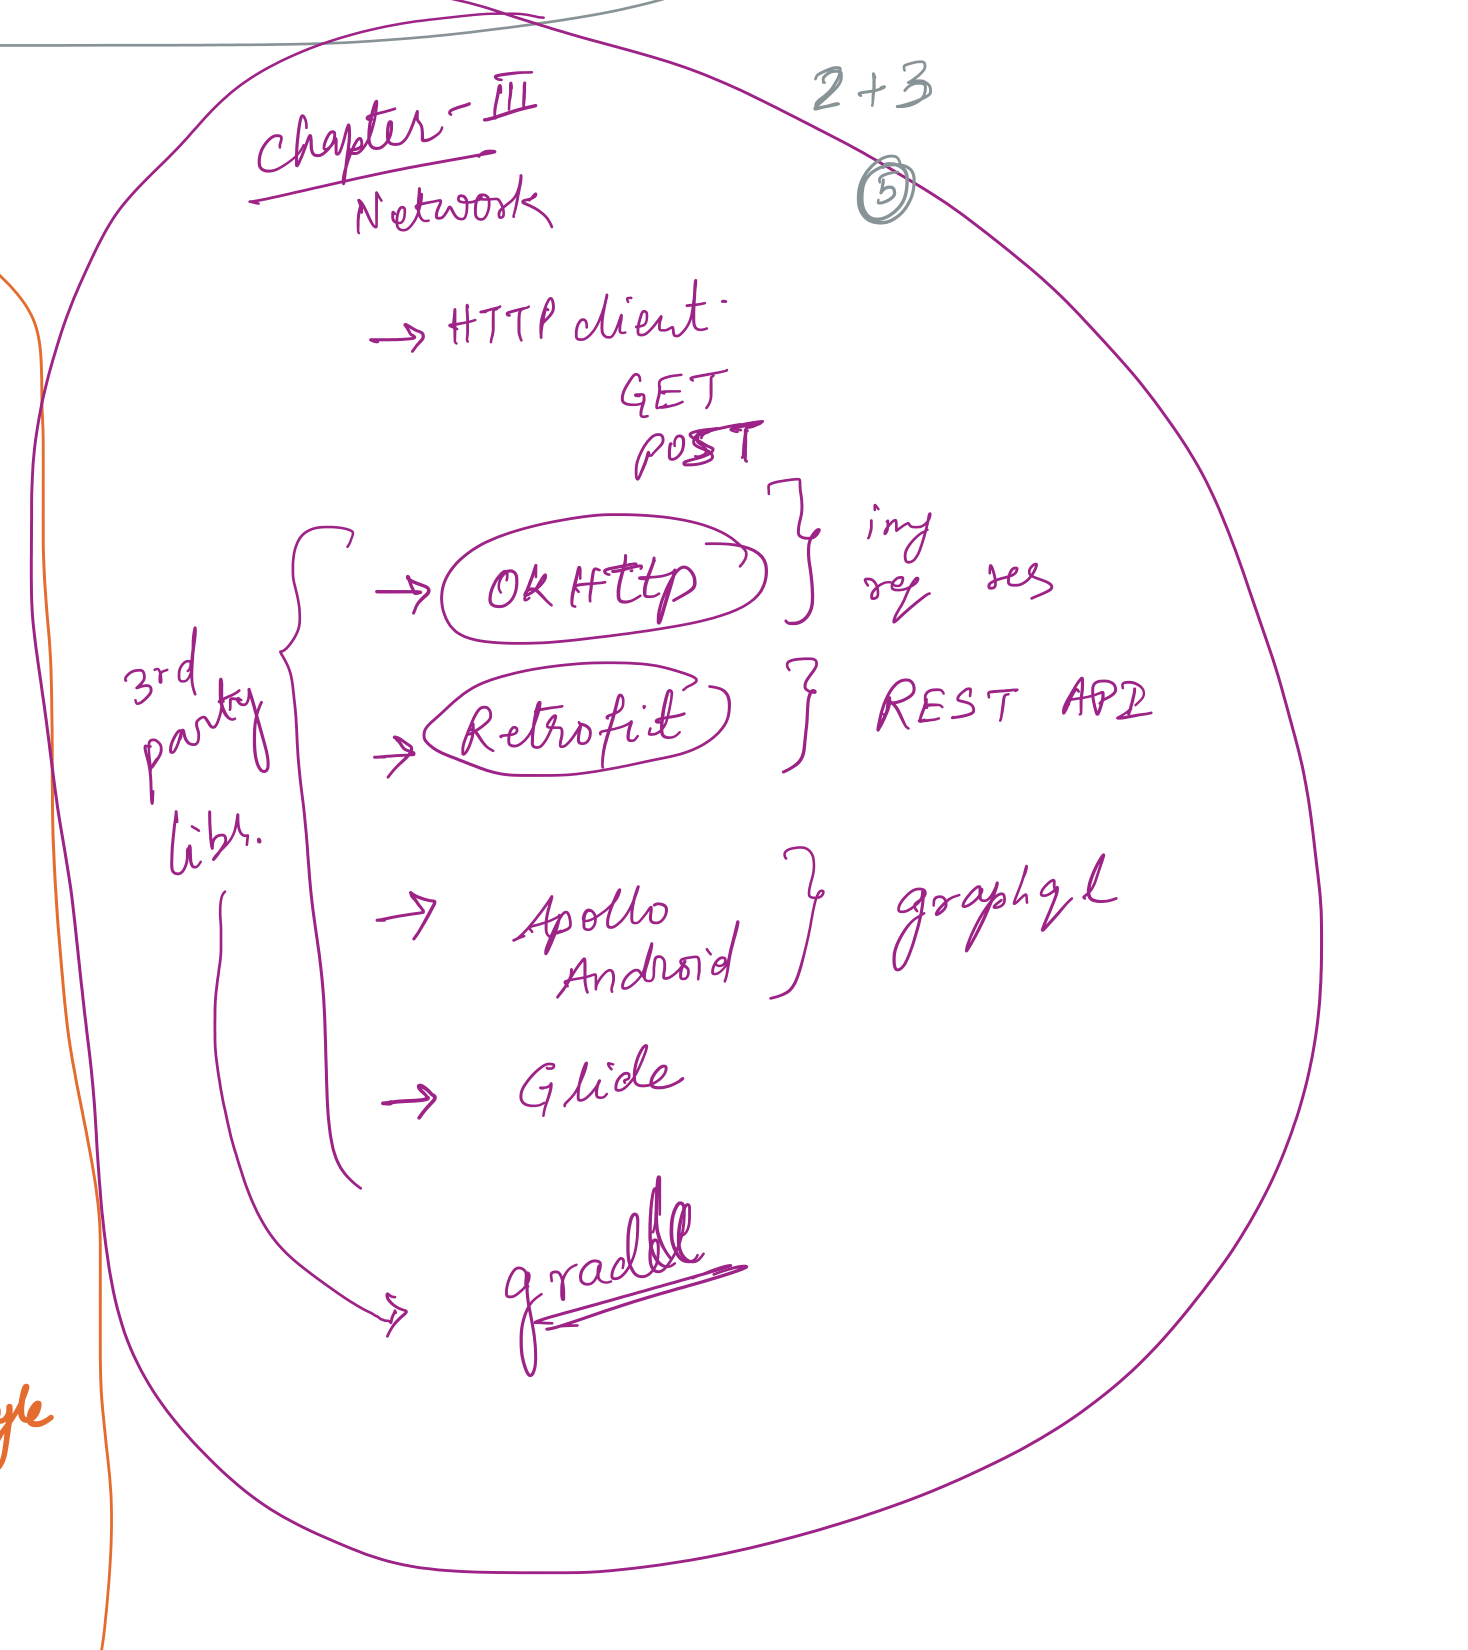 2+3
5
chapter - III
Network
→ HTTP client
GET
POST
3rd
party
libs.
→ OK Http } img
req res
→ Retrofit } REST API
→ Apollo
Android } graphql
→ Glide
→ gradle